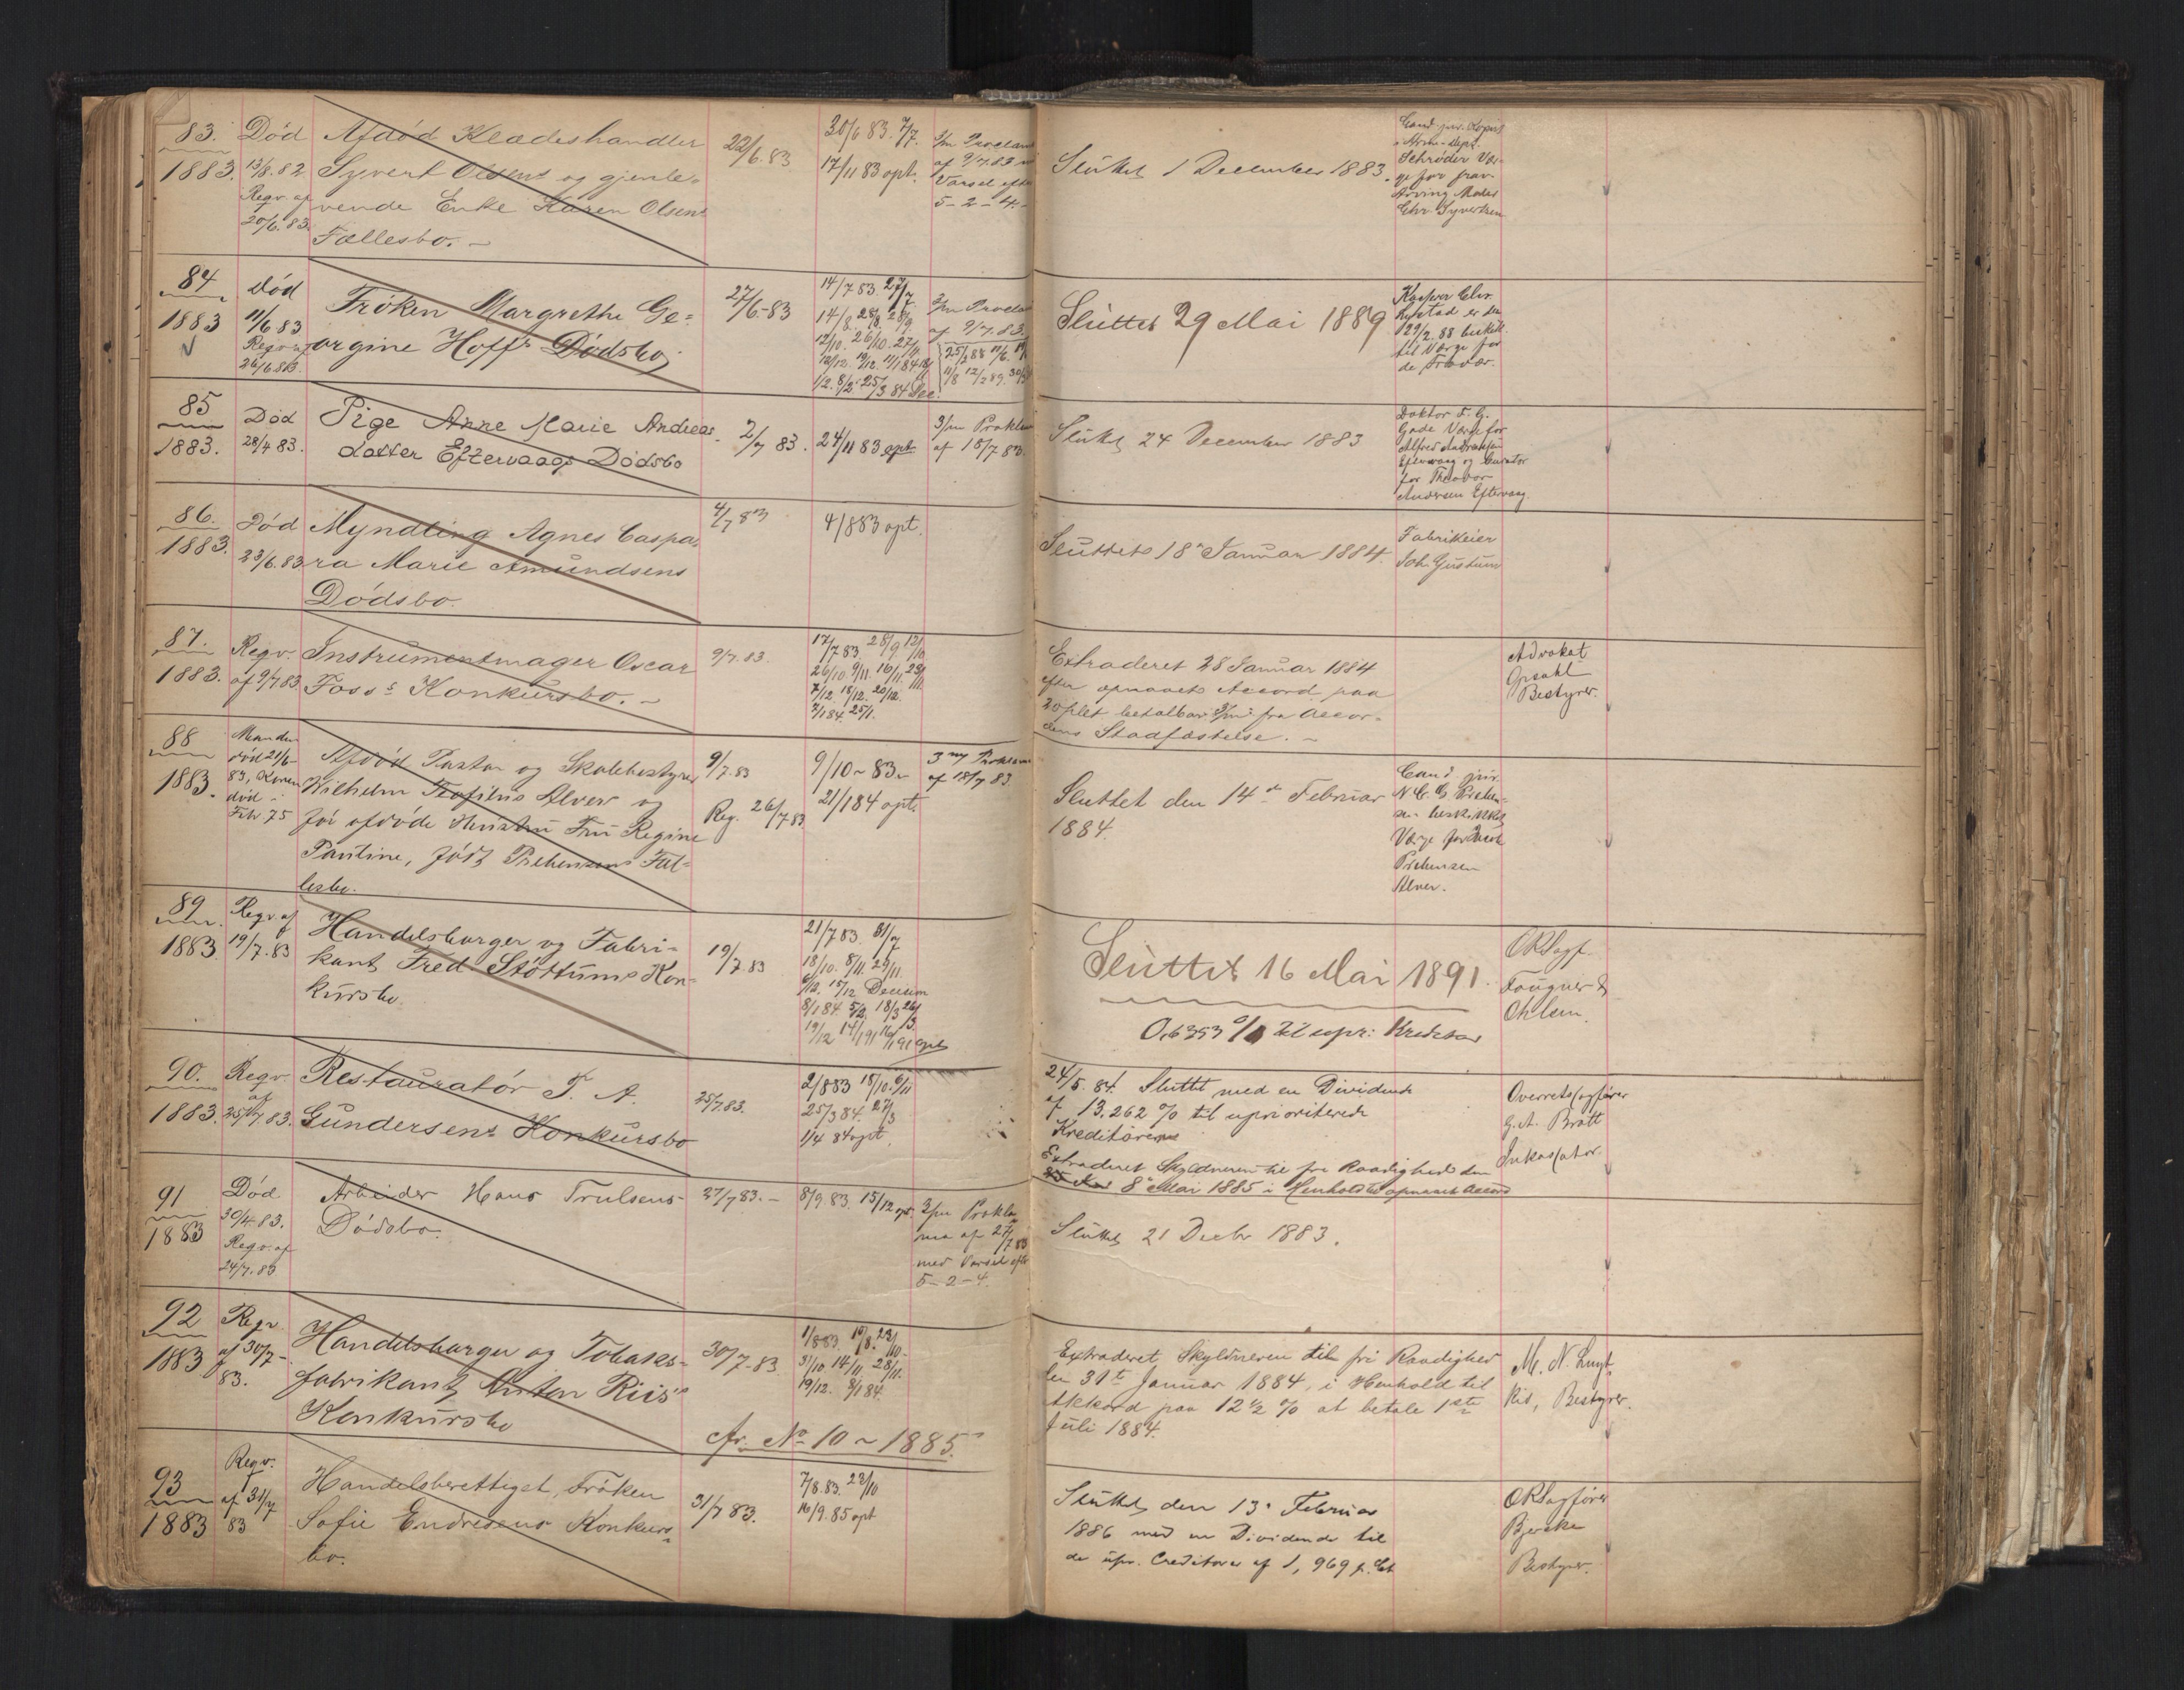 83.
1883.
Død
13/8.82
Regv. af
20/6.83.
Afdød Klædeshandler
Syvert Olsens og gjenle-
vende Enke Karen Olsens
Fællesbo.
22/6.83
30/6 83. 7/7.
17/11 83 opt.
3/m Proclam
af 9/7.83 m
Varsel efter
5-2-4.
Sluttet 1 December 1883.
Cand. jur. Kopist
Schrøder Vær-
ge for frav.
Arving Mads
Chr. Syvertsen
84
1883
død
11/6 83
Regv. af
26/6.83.
Frøken Margrethe Ge-
orgine Hoffs Dødsbo
27/6-83
14/7 83. 27/7
14/8. 28/8. 28/9
12/10. 26/10. 27/11
3/m Proclam
af 9/7.83.
Sluttet 29 Mai 1889
Kasper Chr.
Lystad er den
129/2 88 beskik.
til Værge for
de Fravær.
85
1883.
Død
28/4 83.
Pige Anne Marie Andreas-
datter Eftervaags Dødsbo
2/7 83.
24/11 83 opt.
3/m Proklam
af 15/7 83.
Sluttet 24 December 1883
Doktor F. G.
Gade Værge for
Alfred Andreassen
Eftervaag og Curator
for Theodor
Andersen Eftervaag.
86.
1883.
Død
23/6.83
Myndling Agnes Caspa-
ra Marie Amundsens
Dødsbo.
4/7 83
4/8 83 opt.
Sluttet 18de Januar 1884.
Fabrikeier
Joh. Gustum
87.
1883.
Regv.
af 9/7 83
Instrumentmager Oscar
Foss's Konkursbo.
9/7.83.
17/7 83. 28/9 12/10
26/10. 9/11. 16/11. 23/11
7/12. 18/12. 20/12.
7/1 84. 25/1.
Extraderet 28 Januar 1884
efter opnaaet Accord paa
20 pCt betalbar 3/m fra Accor-
dens Stadfæstelse.
Advokat
Opsahl
Bestyrer.
88
1883.
Manden
død 21/6-
83, Konen
død i
Febr 75
Afdød Pastor og Skolebestyrer
Wilhelm Teofilus Alver og
før afdøde Hustru Fru Regine
Pauline, født Prebensens Fæl-
lesbo.
9/7.83
Reg. 26/7 83
9/10-83
21/1 84 opt.
3 m Proklam
af 18/7 83.
Sluttet den 14de Februar
1884.
Cand. jur.
Værge for Jacob
Prebensen
Alver.
89
1883
Regv. af
19/7.83
Handelsborger og Fabri-
kant Fred. Støttums Kon-
kursbo
19/7.83
21/7 83. 31/7
18/10. 8/11. 29/11.
6/12. 15/12 Decision
8/1 84. 5/2. 18/3 26/3.
Sluttet 16 Mai 1891.
0,6353 % til upr: Kreditor
ORSagf.
Fougner &
Ohlsen.
90.
1883.
Regv.
af
25/7 83.
Restauratør T. A.
Gundersens Konkursbo
25/7 83.
2/8 83 15/10. 6/11
25/3 84. 27/3
1/4 84 opt.
24/5. 84. Sluttet med en Dividende
af 13,262 % til uprioriterede
Kreditorer
Extraderet Skyldneren til fri Raadighed den
8de Mai 1885 i Henhold til opnaaet Accord
Overretssagfører
G. A. Bratt
Inkassator.
91
1883
Død
30/4.83.
Regv. af
24/7.83
Arbeider Hans Trulsens
Dødsbo.
27/7 83.-
8/9.83. 15/12 opt
3/m Prokla-
ma af 27/7 83
med Varsel efter
5-2-4.
Sluttet 21 Decbr 1883.
92
1883
Regv.
af 30/7-
83.
Handelsborger og Tobaks-
fabrikant Anton Riis's
Konkursbo
30/7-83
31/10 14/11. 28/11.
19/12. 8/1 84.
cfr. No 10 - 1885.
Extraderet Skyldneren til fri Raadighed
den 31te Januar 1884, i Henhold til
Akkord paa 12 1/2 % at betale 1ste
Juli 1884.
M. N. Luyt-
kis, Bestyrer.
93
1883
Regv.
af 31/7
83
Handelsberettiget, Frøken
Sofie Endresens Konkurs-
bo.
31/7 83.
7/8.83. 23/10
16/9.85 opt
Sluttet den 13de Februar
1886 med en Dividende til
de upr. Creditorer af 1,969 p. Ct
ORSagfører
Bjercke
Bestyrer.